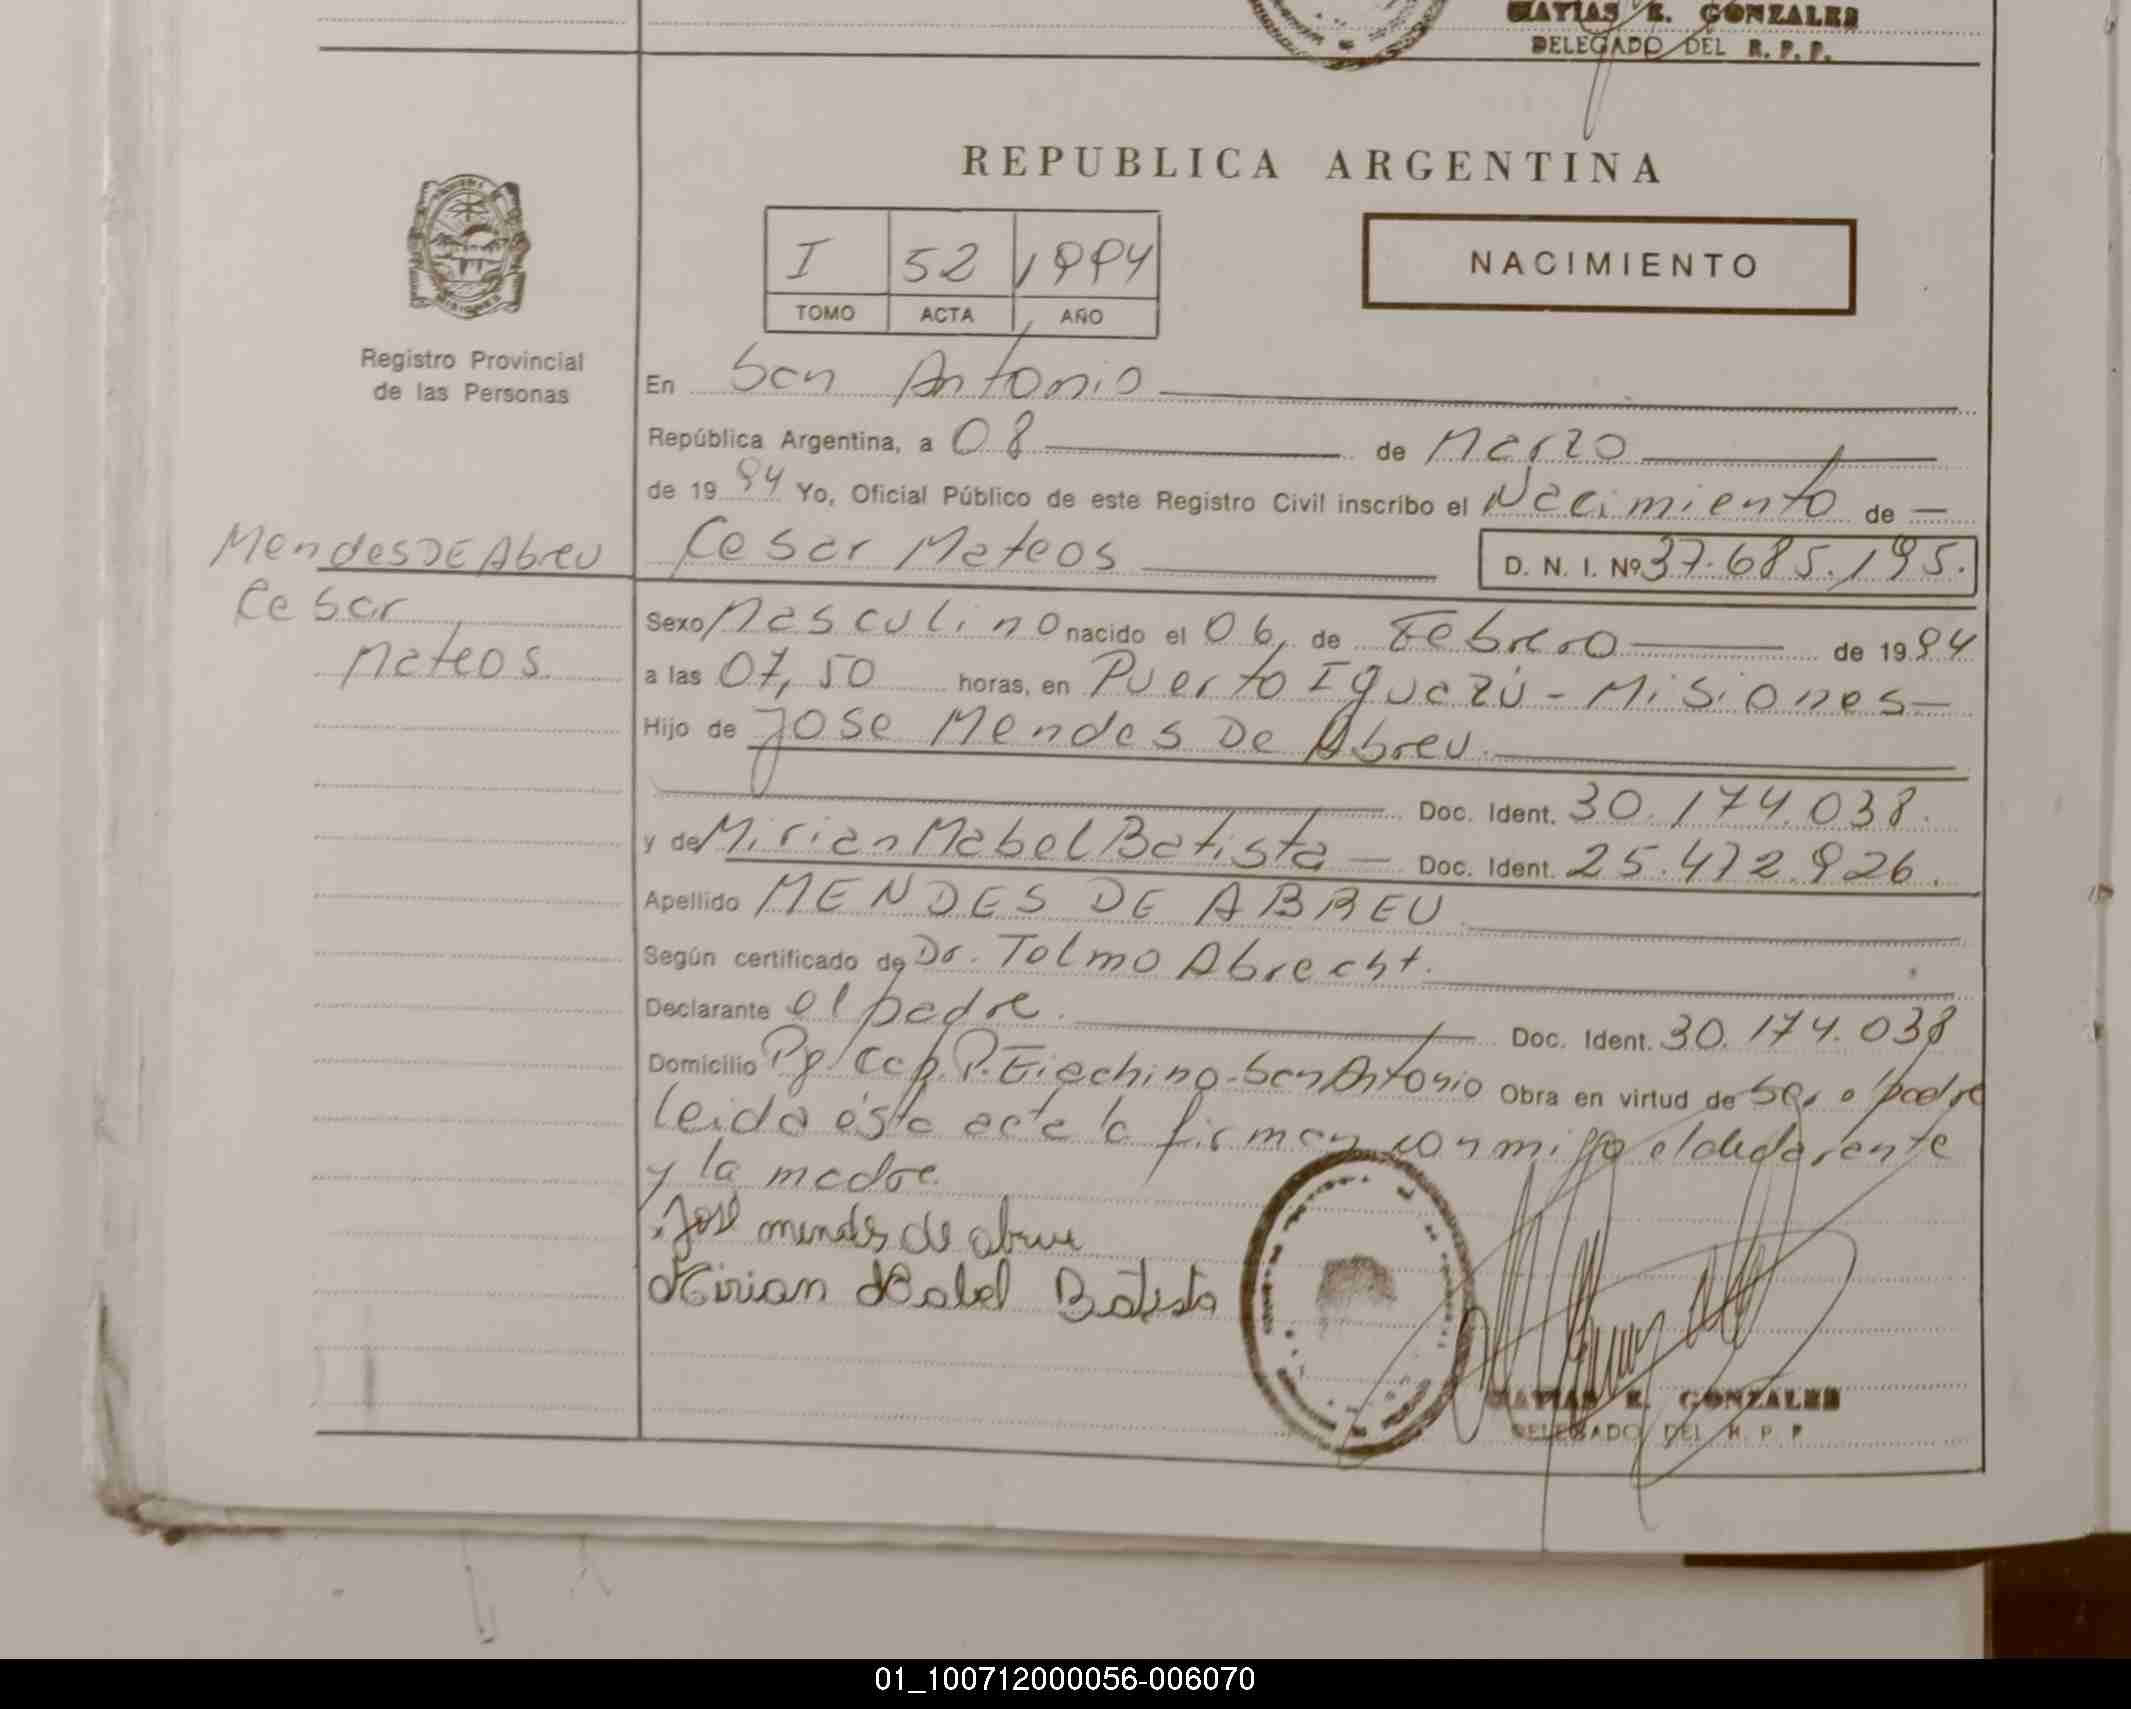 MATIAS E. GONZALES
DELEGADO DEL R. P. P.
REPUBLICA ARGENTINA
I 52 1994
TOMO ACTA AÑO
NACIMIENTO
Registro Provincial
de las Personas
En San Antonio
República Argentina, a 08 de Marzo
de 1994 Yo, Oficial Público de este Registro Civil inscribo el Nacimiento de
Mendes DE Abreu
Cesar
Mateos
Cesar Mateos D. N. I. Nº 37.685.195.
Sexo Masculino nacido el 06, de Febrero de 1994
a las 07,50 horas, en Puerto Iguazú - Misiones
Hijo de Jose Mendes De Abreu.
Doc. Ident. 30.174.038.
y de Mirian Mabel Batista Doc. Ident. 25.472.926.
Apellido MENDES DE ABREU
Según certificado de Dr. Tolmo Abrecht.
Declarante el padre. Doc. Ident. 30.174.038
Domicilio Pje Cap. P. Giachino - San Antonio Obra en virtud de ser el padre
leida ésta acta la firman conmigo el declarante
y la madre
José mendes de abreu
Mirian Mabel Batista
MATIAS E. GONZALES
DELEGADO DEL R. P. P
01_100712000056-006070